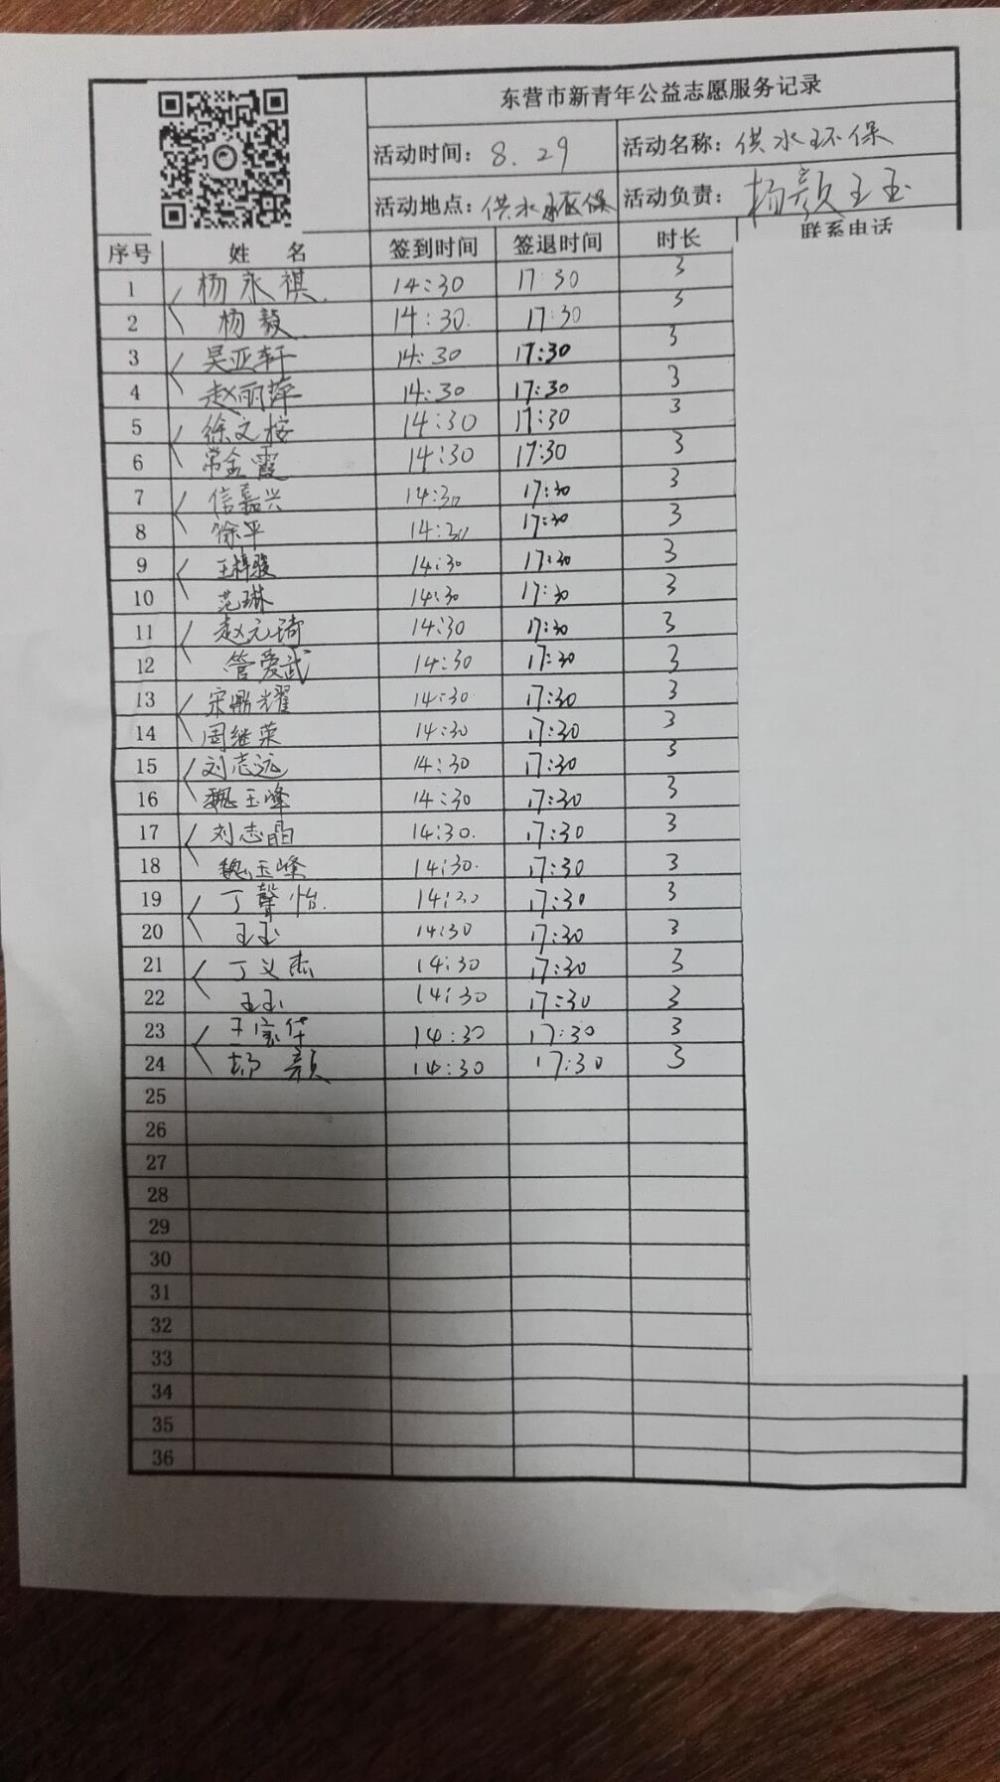 东营市新青年公益志愿服务记录
活动时间: 8.29 活动名称: 供水环保
活动地点: 供水环保 活动负责: 杨颜 王玉
序号 姓 名 签到时间 签退时间 时长 联系电话
1 杨永祺 14:30 17:30 3
2 杨毅 14:30 17:30 3
3 吴亚轩 14:30 17:30 3
4 赵丽萍 14:30 17:30 3
5 徐文桉 14:30 17:30 3
6 常金霞 14:30 17:30 3
7 信嘉兴 14:30 17:30 3
8 徐平 14:30 17:30 3
9 王梓骏 14:30 17:30 3
10 范琳 14:30 17:30 3
11 赵元琦 14:30 17:30 3
12 管爱武 14:30 17:30 3
13 宋鼎耀 14:30 17:30 3
14 周继荣 14:30 17:30 3
15 刘志远 14:30 17:30 3
16 魏玉峰 14:30 17:30 3
17 刘志晶 14:30 17:30 3
18 魏玉峰 14:30 17:30 3
19 丁馨怡 14:30 17:30 3
20 王玉 14:30 17:30 3
21 丁义杰 14:30 17:30 3
22 王玉 14:30 17:30 3
23 王宝华 14:30 17:30 3
24 颜 14:30 17:30 3
25
26
27
28
29
30
31
32
33
34
35
36